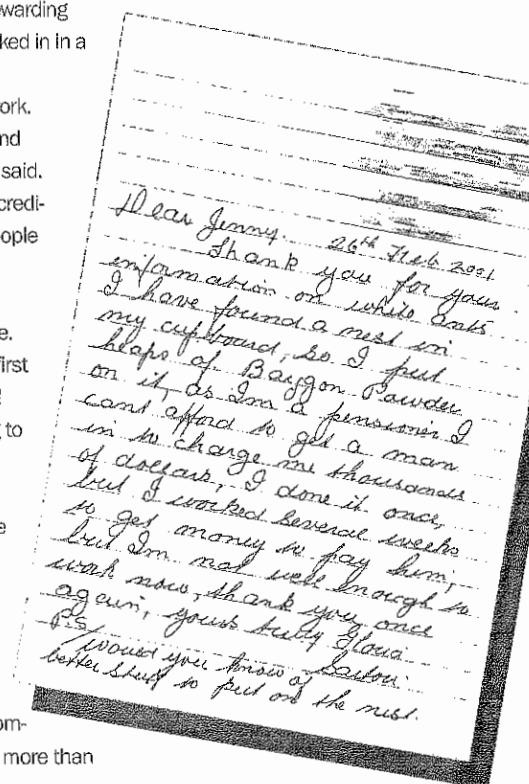 warding
ked in in a
ork.
nd
said.
credi-
ople
e.
first
to
e
om-
more than
Dear Jenny. 26th Feb 2001
Thank you for your
information on white ants
I have found a nest in
my cupboard, so I put
heaps of Baygon Powder
on it, as Im a pensioner I
cant afford to get a man
in to charge me thousands
of dollars, I done it once,
but I worked several weeks
to get money to pay him,
but Im not well enough to
work now, thank you once
again, yours truly Gloria
P.S.
would you know of a
better stuff to put on the nest.